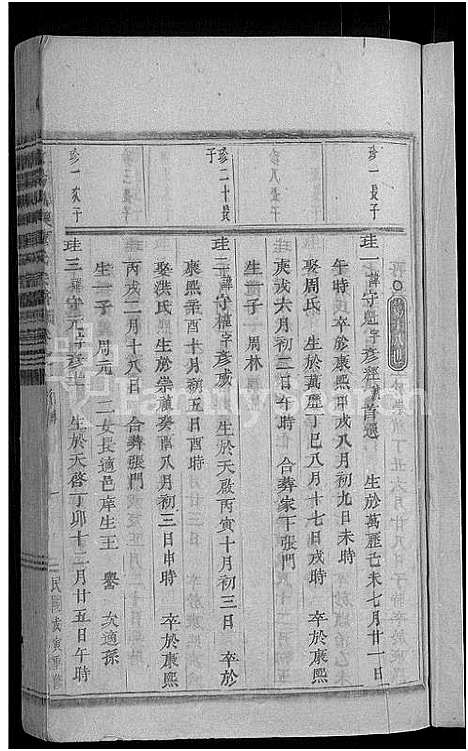 珍一長子
珪一諱守
生於萬歷己未七月廿一日
午時 卒於康熙甲戌八月初九日未時
娶周氏 生於萬歷丁巳八月十七日戌時 卒於康熙
庚戌六月初二日午時 合葬家下張門
生一子 周林
珍二十長
子
珪二諱守權字彥威 生於天啟丙寅十月初三日 卒於
康熙癸酉十月初五日酉時
娶洪氏 生於崇禎癸酉八月初三日申時 卒於康熙
丙戌二月十八日 合葬張門
生一子 周元 二女長適邑庠生王譽 次適孫
珍一次子
珪三諱守元字彥 生於天啓丁卯十二月廿五日午時
民國戊寅重修
FamilySearch